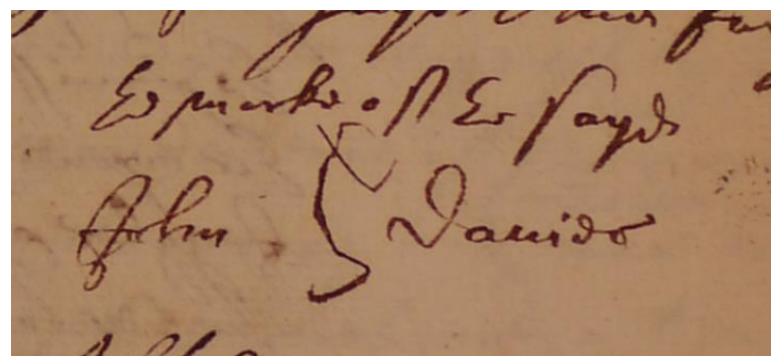 The marke of the sayd
John Davids